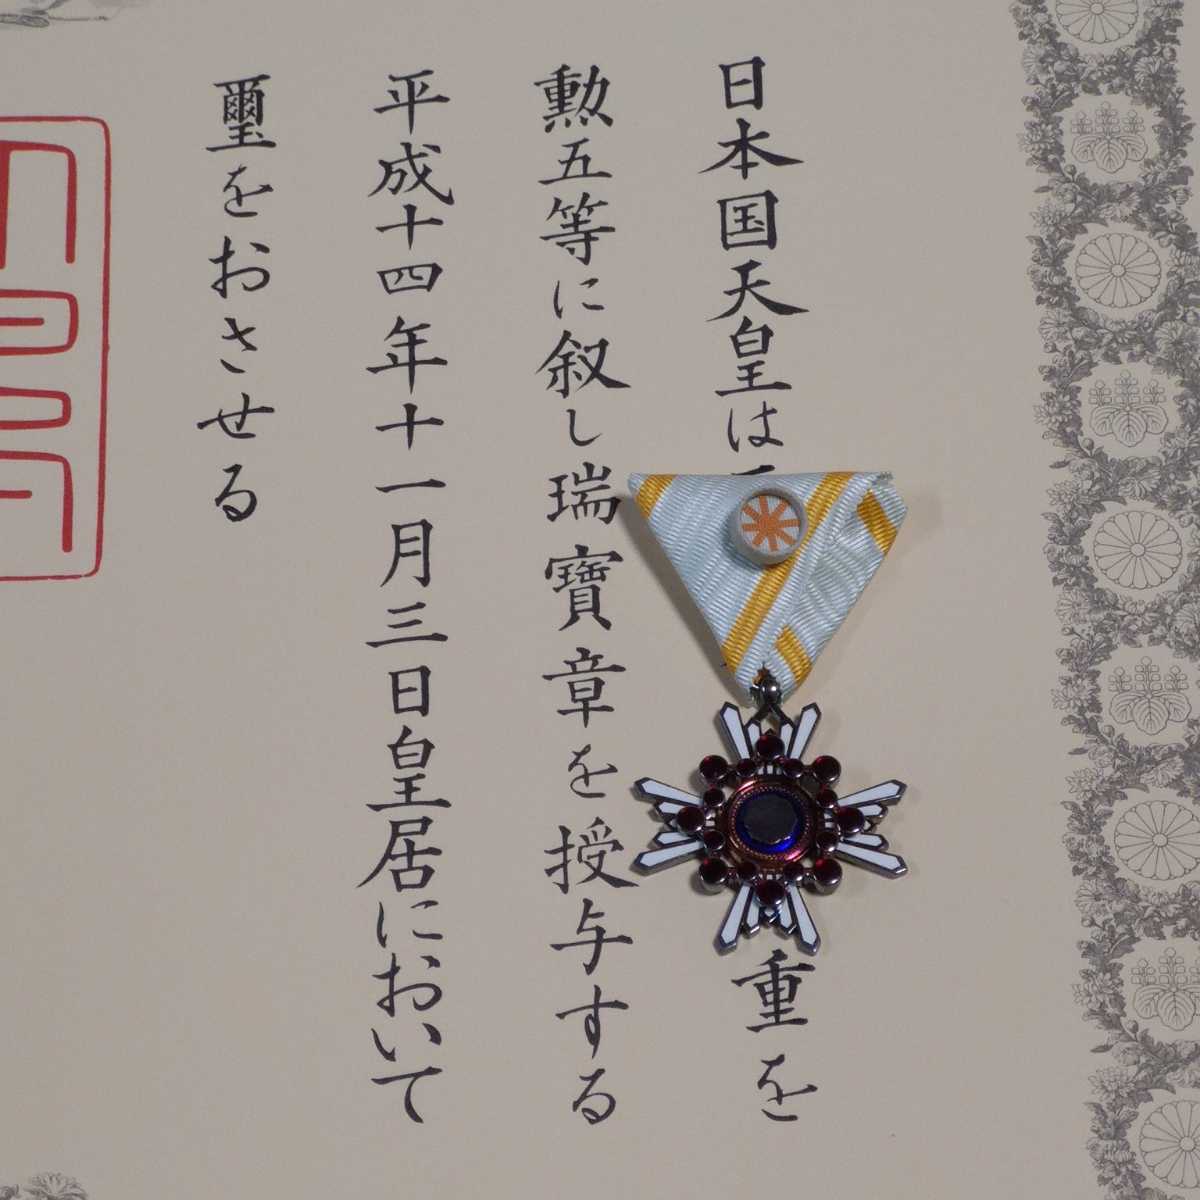 日本国天皇は
重を
勲五等に叙し瑞寶章を授与する
平成十四年十一月三日皇居において
璽をおさせる